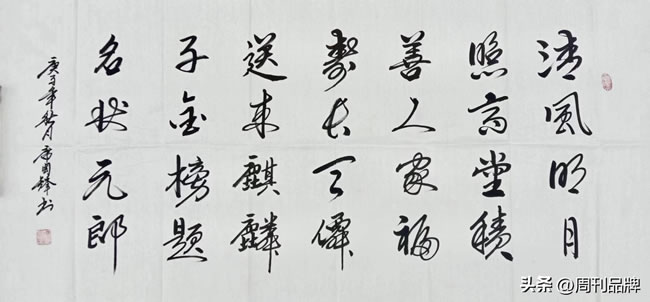 清風明月
照高堂積
善人家福
壽长天僊
送来麒麟
子金榜题
名状元郎
庚子年秋月
头条 @周刊品牌